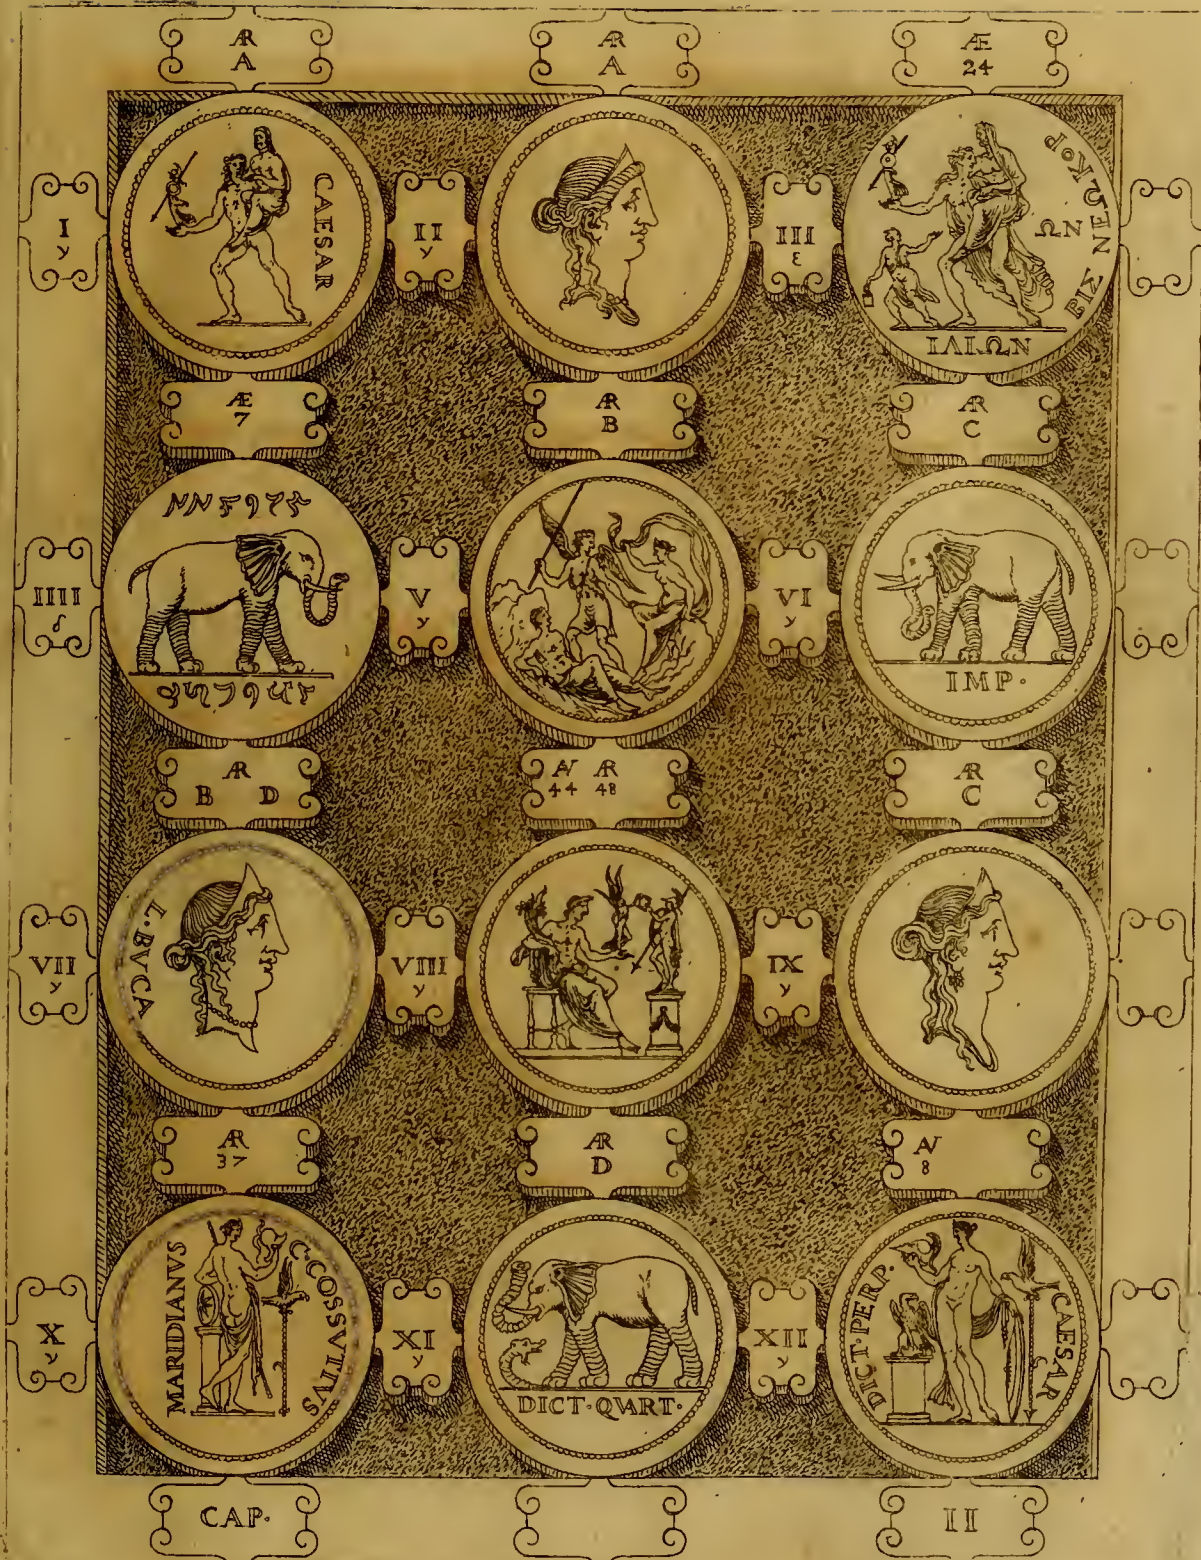 Æ A
Æ A
Æ 24
I
γ
CAESAR
II
γ
III
ε
ΝΕΩΚΟΡ
ΩΝ
ΒΙΣ
ΙΛΙΩΝ
Æ
7
AR
B
AR
C
IIII
V
γ
VI
γ
IMP·
AR
B D
AV AR
44 48
AR
C
VII
γ
L·BVCA
VIII
γ
IX
γ
AR
37
AR
D
AV
8
X
γ
MARIDIANVS
C·COSSVTIVS
XI
γ
DICT·QVART·
XII
γ
DICT·PERP·
CAESAR
CAP·
II